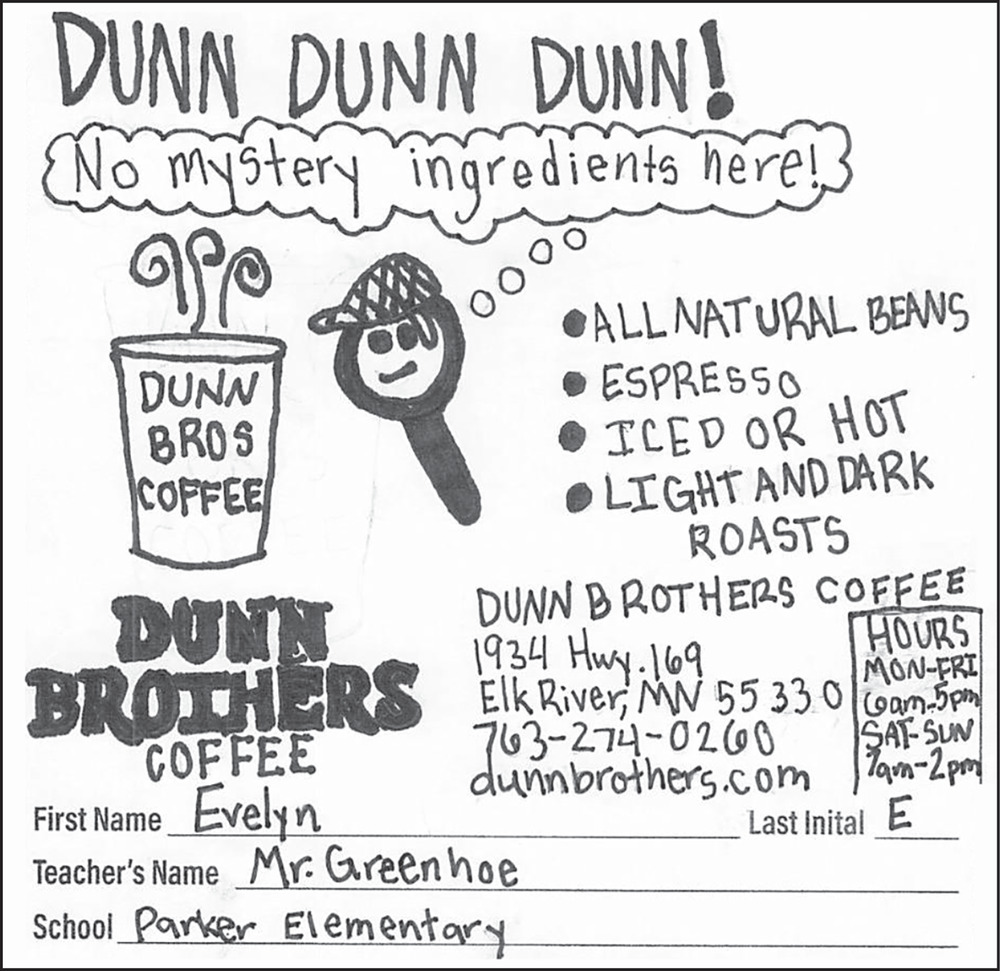 DUNN DUNN DUNN!
No mystery ingredients here!
DUNN
BROS
COFFEE
• ALL NATURAL BEANS
• ESPRESSO
• ICED OR HOT
• LIGHT AND DARK
ROASTS
DUNN
BROTHERS
COFFEE
DUNN BROTHERS COFFEE
1934 Hwy. 169
Elk River, MN 55330
763-274-0260
dunnbrothers.com
HOURS
MON-FRI
6am-5pm
SAT-SUN
7am-2pm
First Name Evelyn Last Inital E
Teacher's Name Mr. Greenhoe
School Parker Elementary